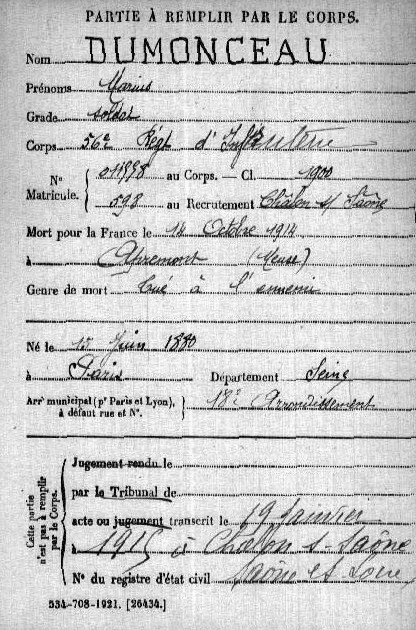 PARTIE À REMPLIR PAR LE CORPS.
Nom DUMONCEAU
Prénoms Marius
Grade soldat
Corps 56e Régt d'Infanterie
Nos Matricule. 011998 au Corps. — Cl. 1900
898 au Recrutement Châlon s/ Saône
Mort pour la France le 14 Octobre 1914
à Apremont (Meuse)
Genre de mort tué à l'ennemi
Né le 15 Juin 1880
à Paris Département Seine
Arrt municipal (pr Paris et Lyon), 18e Arrondissement
à défaut rue et N°.
Cette partie
n'est pas à remplir
par le Corps.
Jugement rendu le
par le Tribunal de
acte ou jugement transcrit le 19 Janvier
à 1915 à Chalon s-Saône
N° du registre d'état civil Saône et Loire
534-708-1921. [26434.]